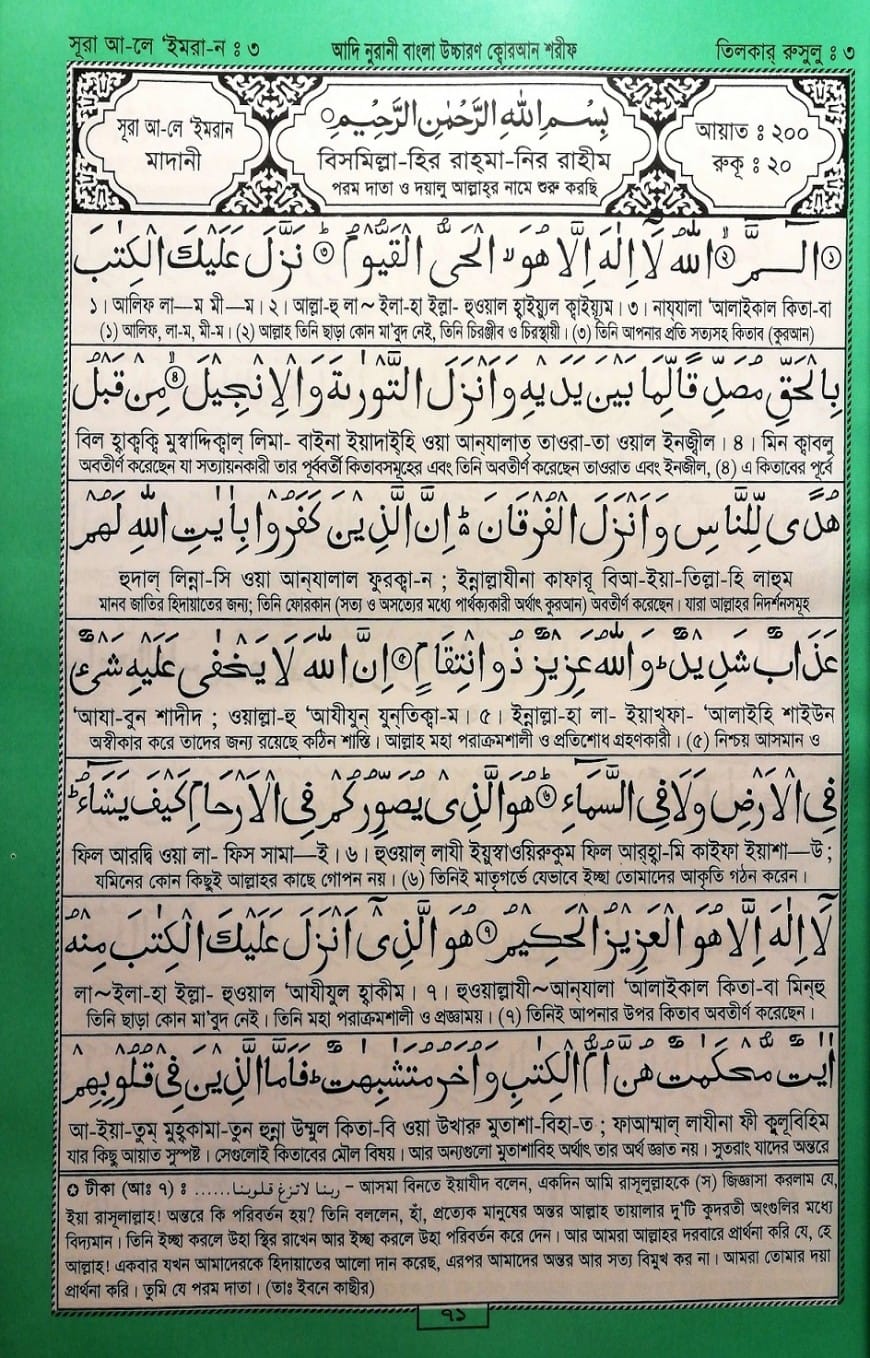 সূরা আ-লে ‘ইমরা-ন ঃ ৩
আদি নুরানী বাংলা উচ্চারণ ক্বোরআন শরীফ
তিলকার্ রুসুলু ঃ ৩
সূরা আ-লে ‘ইমরান
মাদানী
بِسْمِ اللهِ الرَّحْمٰنِ الرَّحِيْمِ
বিসমিল্লা-হির রাহ্‌মা-নির রাহীম
পরম দাতা ও দয়ালু আল্লাহ্‌র নামে শুরু করছি
আয়াত ঃ ২০০
রুকূ ঃ ২০
الٓــمّٓ ۝ اللهُ لَآ اِلٰهَ اِلَّا هُوَ ۙ الْحَىُّ الْقَيُّوْمُ ۝ نَزَّلَ عَلَيْكَ الْكِتٰبَ
১। আলিফ লা—ম মী—ম। ২। আল্লা-হু লা~ ইলা-হা ইল্লা- হুওয়াল হ্বাইয়্যুল ক্বাইয়্যূম। ৩। নায্‌যালা ‘আলাইকাল কিতা-বা
(১) আলিফ, লা-ম, মী-ম। (২) আল্লাহ তিনি ছাড়া কোন মা'বুদ নেই, তিনি চিরঞ্জীব ও চিরস্থায়ী। (৩) তিনি আপনার প্রতি সত্যসহ কিতাব (কুরআন)
بِالْحَقِّ مُصَدِّقًا لِّمَا بَيْنَ يَدَيْهِ وَاَنْزَلَ التَّوْرٰىةَ وَالْاِنْجِيْلَ ۝ مِنْ قَبْلُ
বিল হ্বাক্বক্বি মুস্বাদ্দিক্বাল্ লিমা- বাইনা ইয়াদাই্‌হি ওয়া আন্‌যালাত্ তাওরা-তা ওয়াল ইনজ্বীল। ৪। মিন ক্বাবলু
অবতীর্ণ করেছেন যা সত্যায়নকারী তার পূর্ববর্তী কিতাবসমূহের এবং তিনি অবতীর্ণ করেছেন তাওরাত এবং ইনজীল, (৪) এ কিতাবের পূর্বে
هُدًى لِّلنَّاسِ وَاَنْزَلَ الْفُرْقَانَ ؕ اِنَّ الَّذِيْنَ كَفَرُوْا بِاٰيٰتِ اللهِ لَهُمْ
হুদাল্ লিন্না-সি ওয়া আন্‌যালাল ফুরক্বা-ন ; ইন্নাল্লাযীনা কাফারূ বিআ-ইয়া-তিল্লা-হি লাহুম
মানব জাতির হিদায়াতের জন্য; তিনি ফোরকান (সত্য ও অসত্যের মধ্যে পার্থক্যকারী অর্থাৎ কুরআন) অবতীর্ণ করেছেন। যারা আল্লাহর নিদর্শনসমূহ
عَذَابٌ شَدِيْدٌ ؕ وَاللهُ عَزِيْزٌ ذُو انْتِقَامٍ ۝ اِنَّ اللهَ لَا يَخْفٰى عَلَيْهِ شَىْءٌ
‘আযা-বুন শাদীদ ; ওয়াল্লা-হু ‘আযীযুন্ যুন্‌তিক্বা-ম। ৫। ইন্নাল্লা-হা লা- ইয়াখ্‌ফা- ‘আলাইহি শাইউন
অস্বীকার করে তাদের জন্য রয়েছে কঠিন শাস্তি। আল্লাহ মহা পরাক্রমশালী ও প্রতিশোধ গ্রহণকারী। (৫) নিশ্চয় আসমান ও
فِى الْاَرْضِ وَلَا فِى السَّمَآءِ ۝ هُوَ الَّذِىْ يُصَوِّرُكُمْ فِى الْاَرْحَامِ كَيْفَ يَشَآءُ ؕ
ফিল আরদ্বি ওয়া লা- ফিস সামা—ই। ৬। হুওয়াল্ লাযী ইয়ুস্বাওয়িরুকুম ফিল আর্‌হ্বা-মি কাইফা ইয়াশা—উ ;
যমিনের কোন কিছুই আল্লাহর কাছে গোপন নয়। (৬) তিনিই মাতৃগর্ভে যেভাবে ইচ্ছা তোমাদের আকৃতি গঠন করেন।
لَآ اِلٰهَ اِلَّا هُوَ الْعَزِيْزُ الْحَكِيْمُ ۝ هُوَ الَّذِىْٓ اَنْزَلَ عَلَيْكَ الْكِتٰبَ مِنْهُ
লা~ইলা-হা ইল্লা- হুওয়াল ‘আযীযুল হ্বাকীম। ৭। হুওয়াল্লাযী~আন্‌যালা ‘আলাইকাল কিতা-বা মিন্‌হু
তিনি ছাড়া কোন মা'বুদ নেই। তিনি মহা পরাক্রমশালী ও প্রজ্ঞাময়। (৭) তিনিই আপনার উপর কিতাব অবতীর্ণ করেছেন।
اٰيٰتٌ مُّحْكَمٰتٌ هُنَّ اُمُّ الْكِتٰبِ وَاُخَرُ مُتَشٰبِهٰتٌ ؕ فَاَمَّا الَّذِيْنَ فِىْ قُلُوْبِهِمْ
আ-ইয়া-তুম্ মুহ্‌কামা-তুন হুন্না উম্মুল কিতা-বি ওয়া উখারু মুতাশা-বিহা-ত ; ফাআম্মাল্ লাযীনা ফী ক্বুলূবিহিম
যার কিছু আয়াত সুস্পষ্ট। সেগুলোই কিতাবের মৌল বিষয়। আর অন্যগুলো মুতাশাবিহ অর্থাৎ তার অর্থ জ্ঞাত নয়। সুতরাং যাদের অন্তরে
✪ টীকা (আঃ ৭) ঃ ...... ربنا لا تزغ قلوبنا – আসমা বিনতে ইয়াযীদ বলেন, একদিন আমি রাসূলুল্লাহকে (স) জিজ্ঞাসা করলাম যে,
ইয়া রাসূলাল্লাহ! অন্তরে কি পরিবর্তন হয়? তিনি বললেন, হাঁ, প্রত্যেক মানুষের অন্তর আল্লাহ তায়ালার দু'টি কুদরতী অংগুলির মধ্যে
বিদ্যমান। তিনি ইচ্ছা করলে উহা স্থির রাখেন আর ইচ্ছা করলে উহা পরিবর্তন করে দেন। আর আমরা আল্লাহর দরবারে প্রার্থনা করি যে, হে
আল্লাহ! একবার যখন আমাদেরকে হিদায়াতের আলো দান করেছ, এরপর আমাদের অন্তর আর সত্য বিমুখ কর না। আমরা তোমার দয়া
প্রার্থনা করি। তুমি যে পরম দাতা। (তাঃ ইবনে কাছীর)
৭১